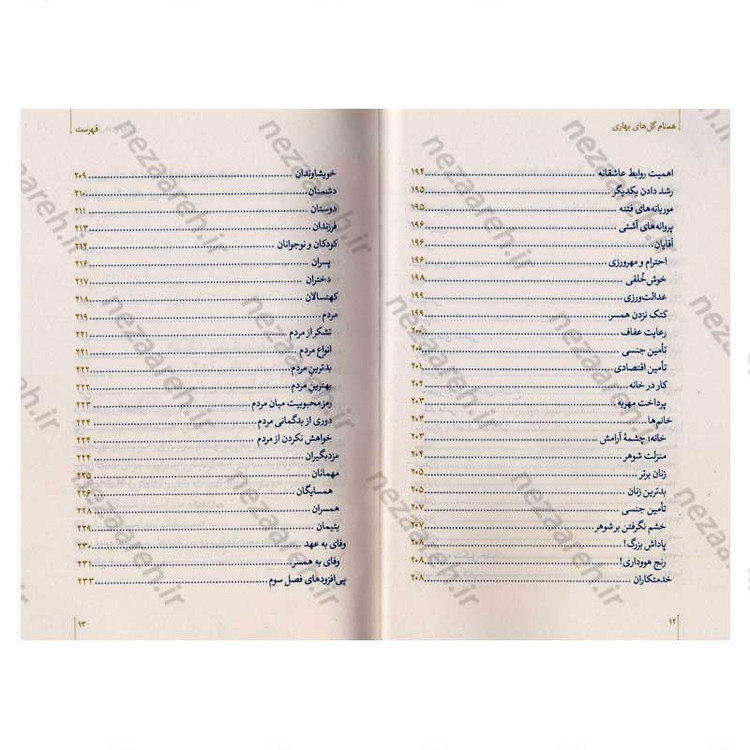 همنام گل‌های بهاری
اهمیت روابط عاشقانه ۱۹۴
رشد دادن یکدیگر ۱۹۵
موریانه‌های فتنه ۱۹۵
پروانه‌های آشتی ۱۹۶
آقایان ۱۹۶
احترام و مهرورزی ۱۹۶
خوش خُلقی ۱۹۸
عدالت‌ورزی ۱۹۹
کتک نزدن همسر ۱۹۹
رعایت عفاف ۲۰۰
تأمین جنسی
تأمین اقتصادی ۲۰۱
کار در خانه ۲۰۲
پرداخت مهریه
خانم‌ها ۲۰۳
خانه؛ چشمهٔ آرامش ۲۰۳
منزلت شوهر ۲۰۴
زنان برتر ۲۰۵
بدترین زنان ۲۰۵
تأمین جنسی ۲۰۷
خشم نگرفتن بر شوهر ۲۰۷
پاداش بزرگ!
رنج هووداری! ۲۰۸
خدمتکاران ۲۰۸
۱۲
فهرست
خویشاوندان ۲۰۹
دشمنان ۲۱۰
دوستان ۲۱۱
فرزندان ۲۱۳
کودکان و نوجوانان ۲۱۴
پسران ۲۱۶
دختران ۲۱۷
کهنسالان ۲۱۸
مردم ۲۱۹
تشکر از مردم ۲۲۱
انواع مردم ۲۲۱
بدترینِ مردم ۲۲۲
بهترینِ مردم ۲۲۲
رمز محبوبیت میان مردم ۲۲۳
دوری از بدگمانی مردم ۲۲۴
خواهش نکردن از مردم ۲۲۴
مزدبگیران ۲۲۴
مهمانان ۲۲۵
همسایگان ۲۲۶
همسران ۲۲۸
یتیمان ۲۲۹
وفای به عهد ۲۳۰
وفای به همسر ۲۳۱
پی‌افزودهای فصل سوم ۲۳۳
۱۳
nezaareh.ir